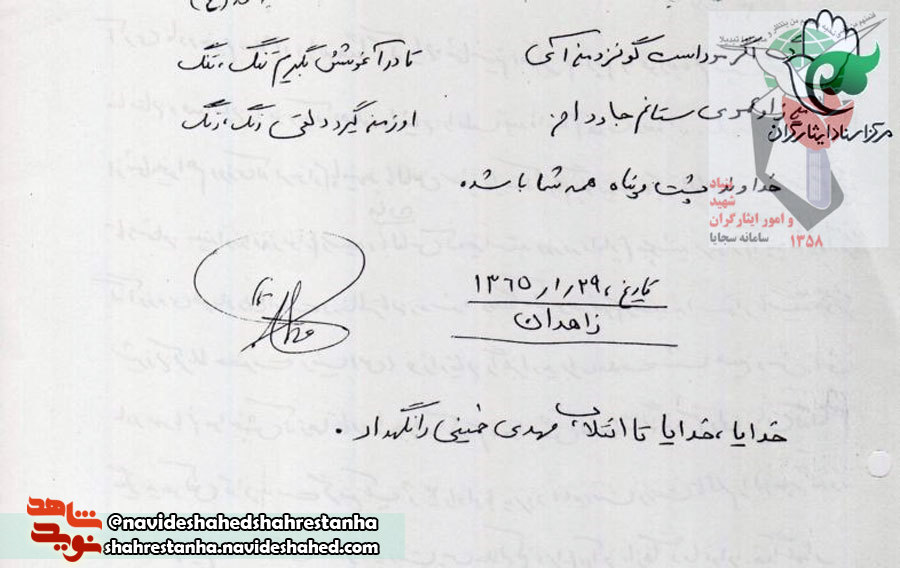 مرگ اگر مرد است گو نزد من آی
تا در آغوشش بگیرم تنگ، تنگ
من ز او عمری ستانم جاودان
او ز من گیرد دلقی رنگ، رنگ
خداوند پشت و پناه همه شما باشد.
تاریخ ۲۹ر۱ر۱۳۶۵
زاهدان
خدایا، خدایا تا انقلاب مهدی خمینی را نگهدار.
مرکز اسناد ایثارگران
بنیاد
شهید
و امور ایثارگران
سامانه سجایا
۱۳۵۸
نوید شاهد
@navideshahedshahrestanha
shahrestanha.navideshahed.com